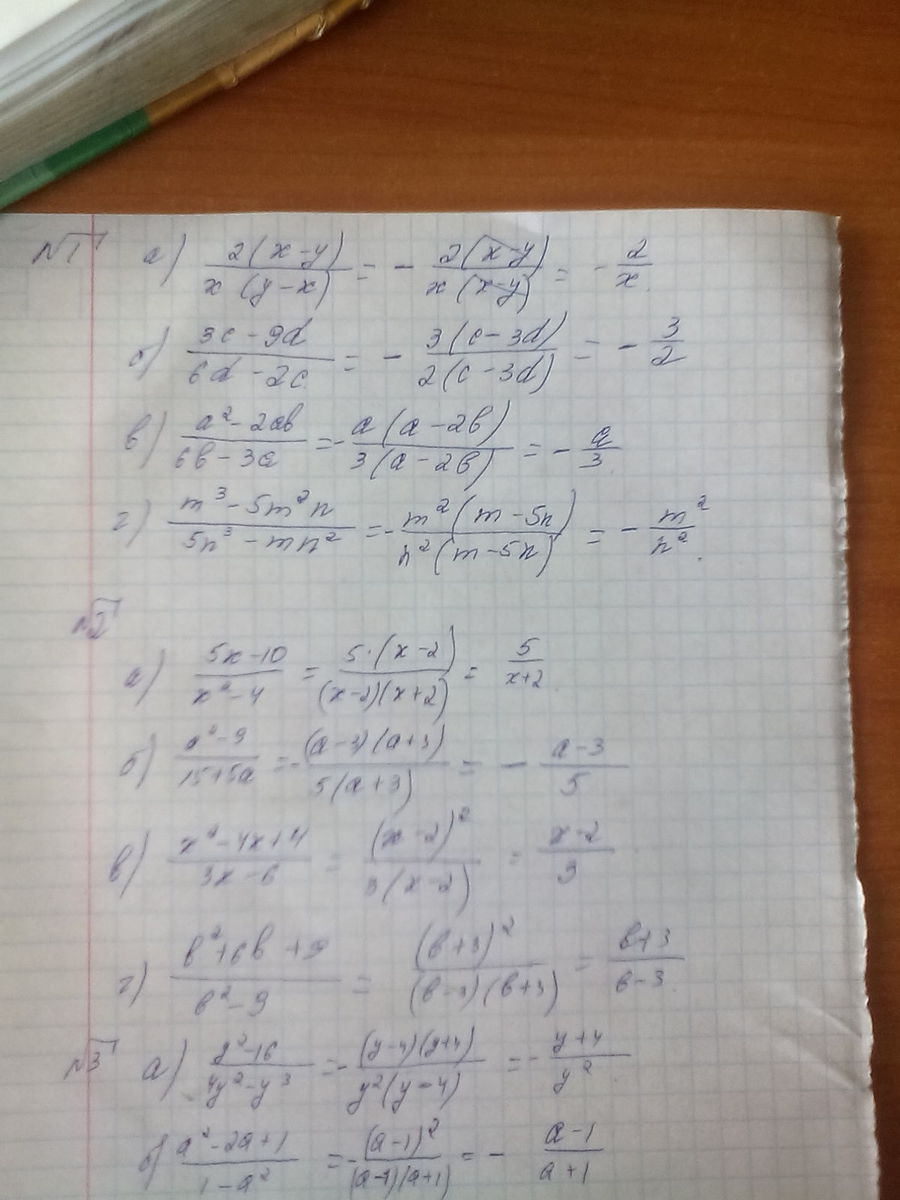 №1 а) 2(x-y)/x(y-x) = - 2(x-y)/x(x-y) = - 2/x.
б) 3c-9d/6d-2c = - 3(c-3d)/2(c-3d) = - 3/2
в) a²-2ab/6b-3a = - a(a-2b)/3(a-2b) = - a/3.
г) m³-5m²n/5n³-mn² = - m²(m-5n)/n²(m-5n) = - m²/n².
№2
а) 5x-10/x²-4 = 5·(x-2)/(x-2)(x+2) = 5/x+2.
б) a²-9/15+5a = - (a-3)(a+3)/5(a+3) = - a-3/5
в) x²-4x+4/3x-6 = (x-2)²/3(x-2) = x-2/3
г) b²+6b+9/b²-9 = (b+3)²/(b-3)(b+3) = b+3/b-3.
№3 а) y²-16/4y²-y³ = - (y-4)(y+4)/y²(y-4) = - y+4/y².
б) a²-2a+1/1-a² = - (a-1)²/(a-1)(a+1) = - a-1/a+1